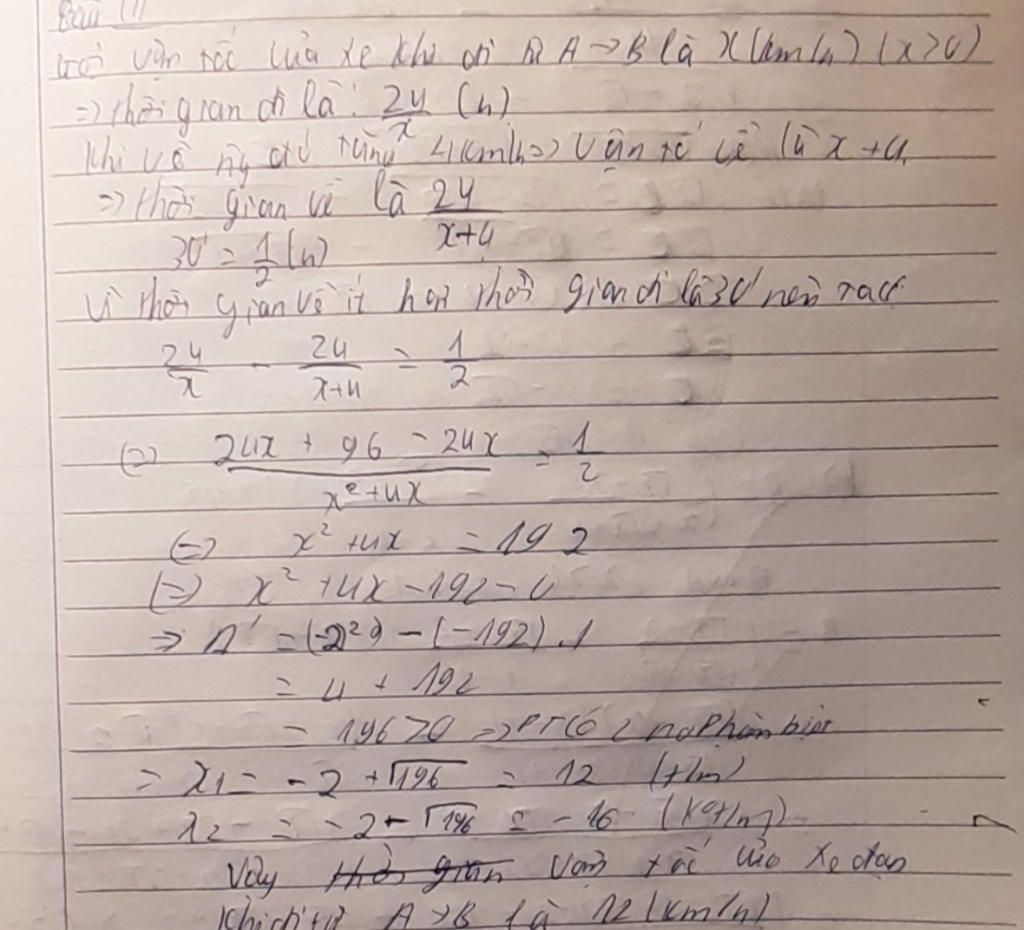 Gọi vận tốc của xe khi đi từ A → B là x (km/h) (x>0)
=> thời gian đi là: 24/x (h)
Khi về ng đó tăng 4 km/h => vận tốc về là x+4
=> thời gian về là 24/(x+4)
30' = 1/2 (h)
Vì thời gian về ít hơn thời gian đi là 30' nên ta có
24/x - 24/(x+4) = 1/2
(=) (24x + 96 - 24x)/(x² + 4x) = 1/2
(=) x² + 4x = 192
(=) x² + 4x - 192 = 0
=> Δ' = (-2)² - (-192).1
= 4 + 192
= 196 > 0 => PT có 2 no phân biệt
= x1 = -2 + √196 = 12 (t/m)
x2 = -2 - √196 = -16 (Ko t/m)
Vậy vận tốc của xe đạp
khi đi từ A → B là 12 (km/h)